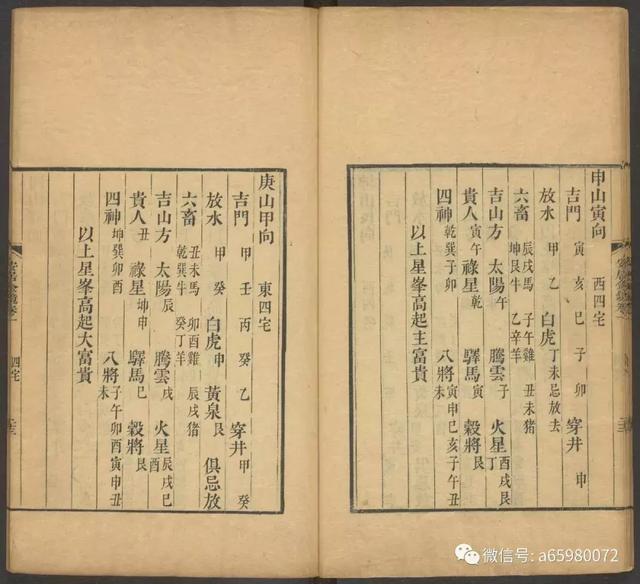 申山寅向 西四宅
吉門 寅 亥 巳 子 卯 穿井 申
放水 甲 乙 白虎 丁未忌放去
六畜 辰戌馬 子午雞 丑未猪 坤艮牛 乙辛羊
吉山方 太陽午 騰雲子 火星酉戌艮丁
貴人寅午 祿星乾 驛馬寅 穀將艮
四神乾巽卯酉 八將寅申巳亥子午丑未
以上星峯高起主富貴
庚山甲向 東四宅
吉門 甲 壬 丙 癸 乙 穿井 甲 癸
放水 甲 癸 白虎申 黃泉艮 俱忌放
六畜 丑未馬 卯酉雞 辰戌猪 乾巽牛 癸丁羊
吉山方 太陽辰 騰雲戌 火星辰戌巳酉
貴人丑 祿星坤申 驛馬巳 穀將艮
四神坤巽卯酉 八將子午卯酉寅申丑未
以上星峯高起大富貴
四宅
微信号: a65980072